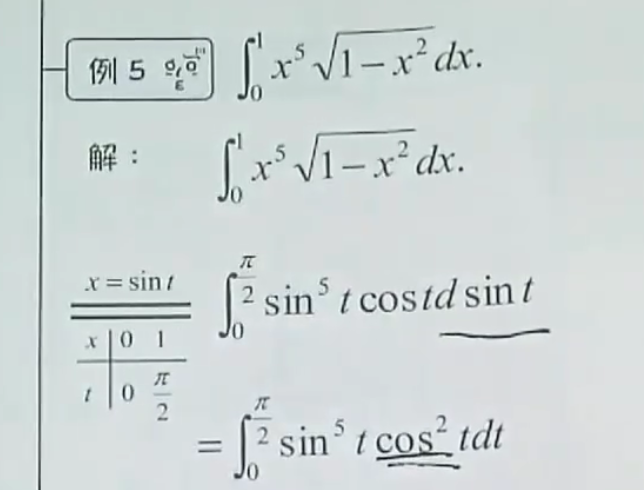 例 5 $\int_0^1 x^5 \sqrt{1-x^2} dx.$
解： $\int_0^1 x^5 \sqrt{1-x^2} dx.$
$x = \sin t$ $\int_0^{\frac{\pi}{2}} \sin^5 t \cos t d \sin t$
x 0 1
t 0 $\frac{\pi}{2}$
$= \int_0^{\frac{\pi}{2}} \sin^5 t \cos^2 t dt$